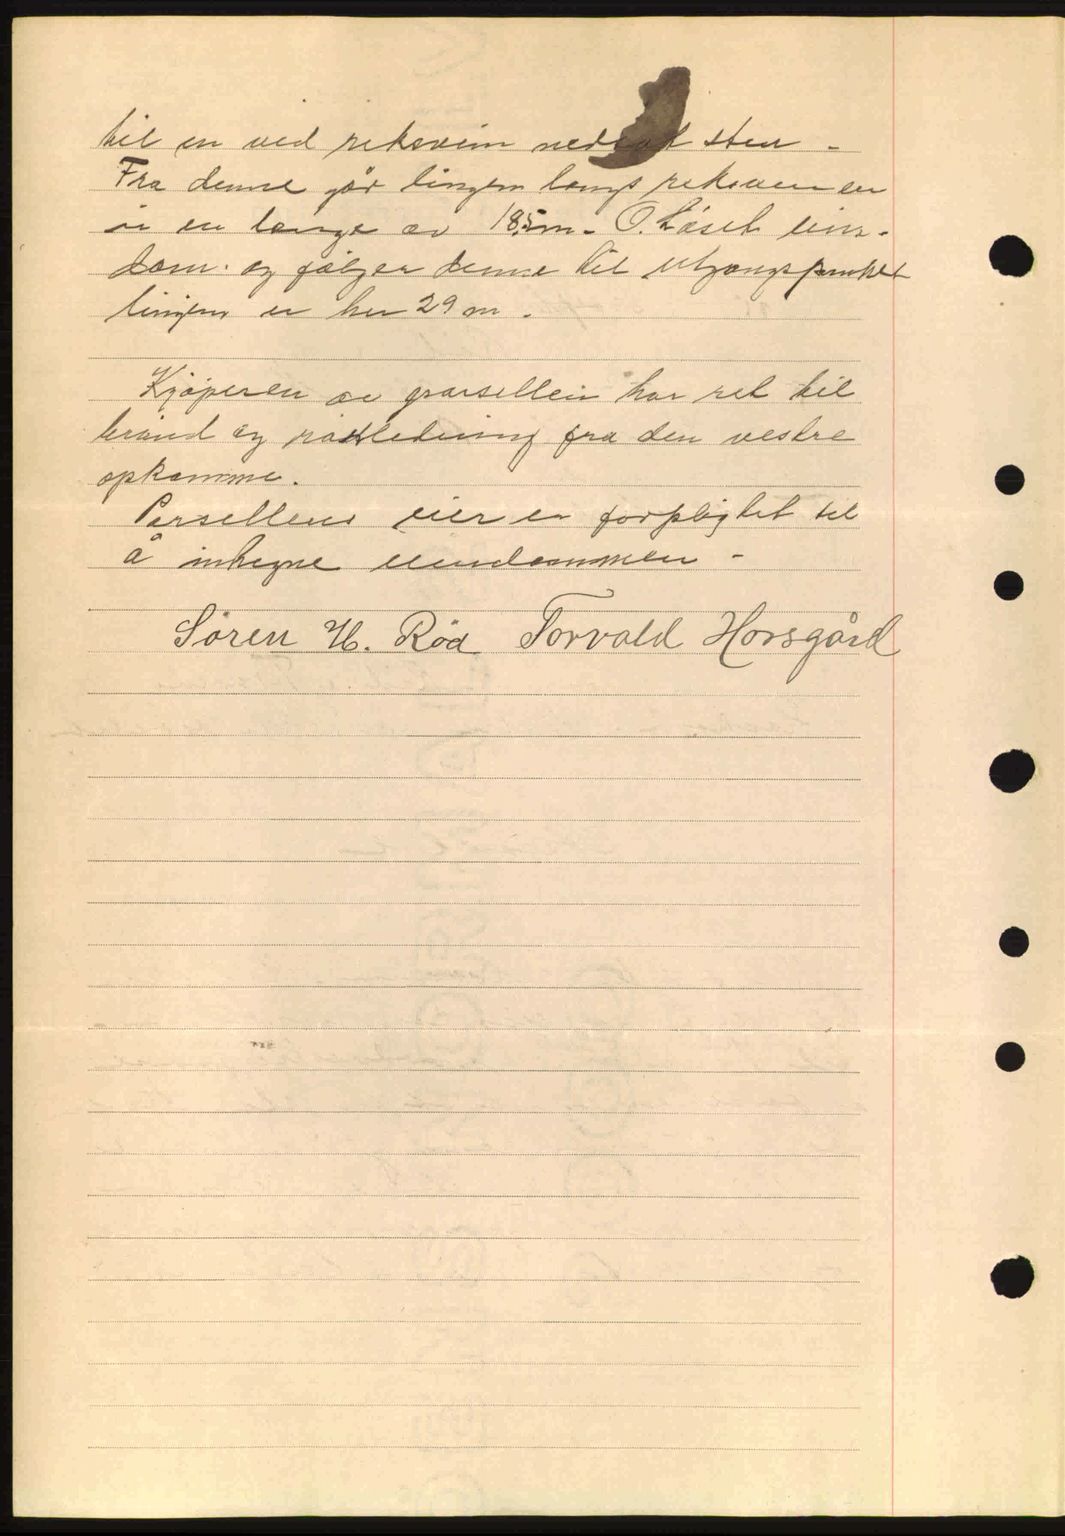 til en ved riksveien nedsat sten -
Fra denne går linjen langs riksveien
i en længe av 18,5 m - O. Låset ein-
dom. og følger denne til utgangspunket
linjen er her 29 m.
Kjøperen av parsellen har ret til
brønd og vandledning fra den vestre
opkomme.
Parsellens eier er forpligtet til
å inhegne eiendommen -
Søren H. Rød Torvald Horsgård